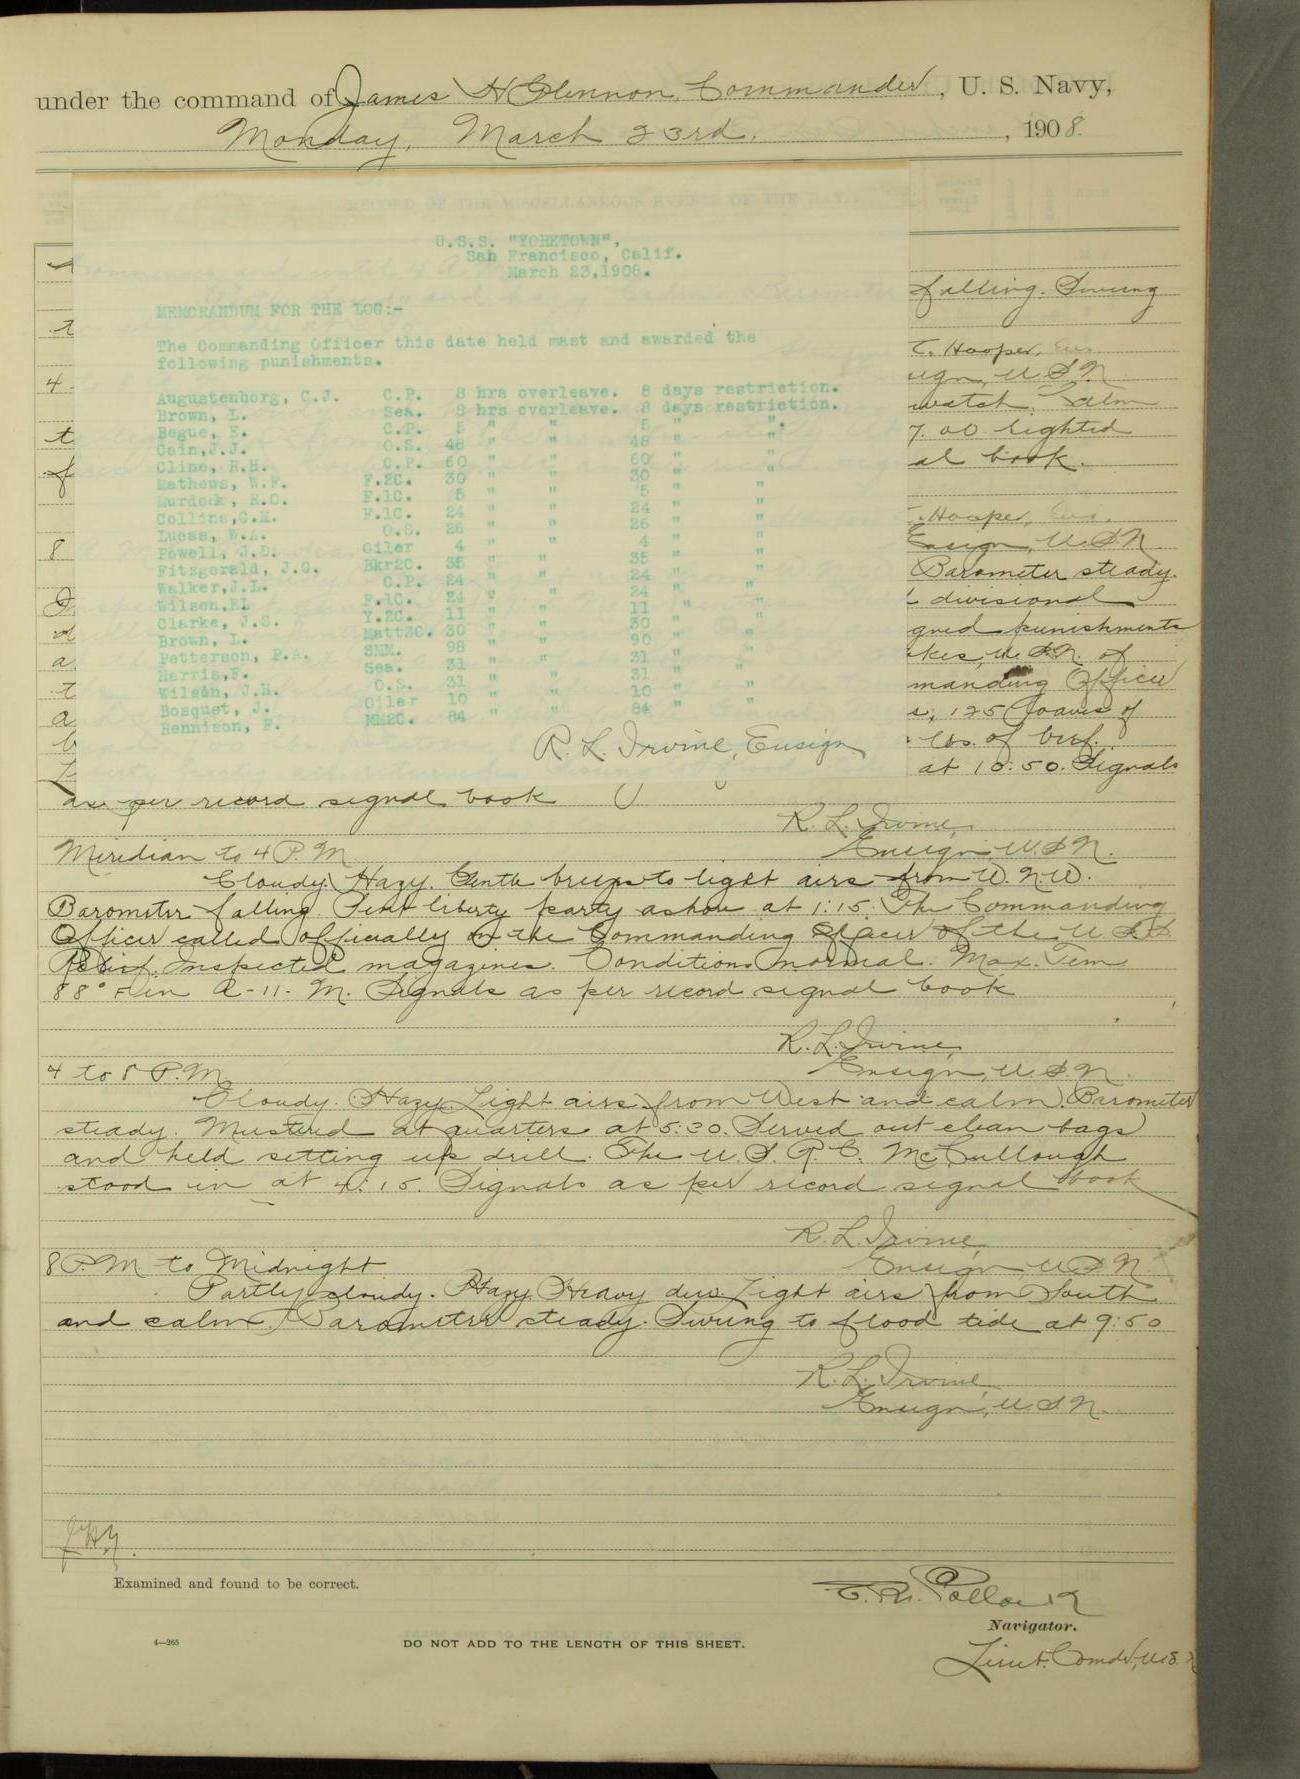 under the command of James H Glennon, Commander, U. S. Navy,
Monday, March 23rd. , 1908.
U.S.S. "YORKTOWN",
San Francisco, Calif.
March 23,1908.
MEMORANDUM FOR THE LOG:-
The Commanding Officer this date held mast and awarded the
following punishments.
Augustenborg, C.J. C.P. 8 hrs overleave. 8 days restriction.
Brown, L. Sea. 8 hrs overleave. 8 days restriction.
Begue, E. C.P. 5 " " 5 " ".
Cain,J.J. O.S. 48 " " 48 " "
Cline, R.H. C.P. 60 " " 60 " "
Mathews, W.F. F.2C. 30 " " 30 " "
Murdock, R.C. F.1C. 5 " " 5 " "
Collins,G.M. F.1C. 24 " " 24 " "
Lucas, W.A. O.S. 26 " " 26 " "
Powell, J.D. Oiler 4 " " 4 " "
Fitzgerald, J.G. Bkr2C. 35 " " 35 " "
Walker,J.L. C.P. 24 " " 24 " "
Wilson,EL F.1C. 24 " " 24 " "
Clarke, J.S. Y.2C. 11 " " 11 " "
Brown, L. Matt3C. 30 " " 30 " "
Petterson, P.A. SMM. 98 " " 90 " "
Harris,F. Sea. 31 " " 31 " "
Wilson, J.H. O.S. 31 " " 31 " "
Bosquet, J. Oiler 10 " " 10 " "
Rennison, F. MM2C. 84 " " 84 " "
R. L. Irvine, Ensign
falling. Swung
C. Hooper,
ign, U.S.N.
watch. Calm
7.00 lighted
al book.
Hooper,
Ensign, U.S.N.
Barometer steady.
divisional
gned punishments
kes, U.S.N. of
manding Officer
s, 125 loaves of
lbs. of beef.
at 10:50. Signals
as per record signal book
R. L. Irvine,
Ensign U.S.N.
Meridian to 4 P.M
Cloudy. Hazy. Gentle breeze to light airs from W.N.W.
Barometer falling. Sent liberty party ashore at 1:15. The Commanding
Officer called officially on the Commanding Officer of the U.S.S.
Inspected magazines. Conditions normal. Max. Tem
88° F in A-11-M. Signals as per record signal book
R. L. Irvine,
Ensign, U.S.N.
4 to 8 P.M.
Cloudy. Hazy. Light airs from West and calm. Barometer
steady. Mustered at quarters at 5:30. Served out clean bags
and held setting up drill. The U.S.R.C. McCullough
stood in at 4:15. Signals as per record signal book
R. L. Irvine,
Ensign, U.S.N.
8 P.M. to Midnight
Partly cloudy. Hazy. Heavy dew. Light airs from South
and calm. Barometer steady. Swung to flood tide at 9:50
R. L. Irvine,
Ensign, U.S.N.
Examined and found to be correct.
Navigator.
4—265
DO NOT ADD TO THE LENGTH OF THIS SHEET.
Lieut. Comdr, U.S.N